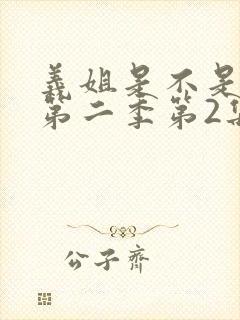 義姐是不是
第二季第2集
公子齊